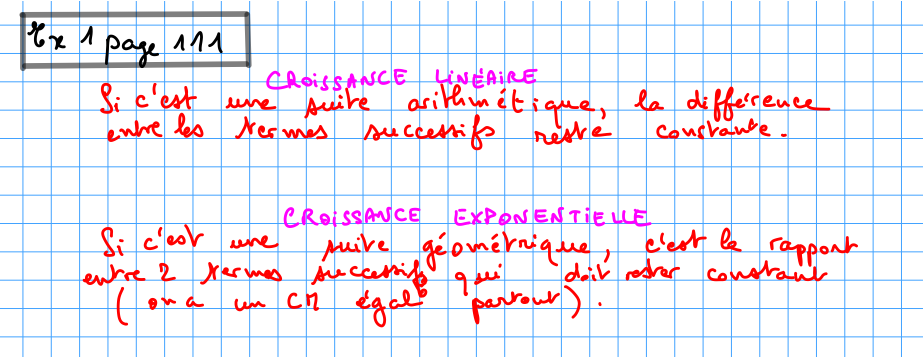 Ex 1 page 111
CROISSANCE LINÉAIRE
Si c'est une suite arithmétique, la différence
entre les termes successifs reste constante.
CROISSANCE EXPONENTIELLE
Si c'est une suite géométrique, c'est le rapport
entre 2 termes successifs qui doit rester constant
(on a un CM égal partout).